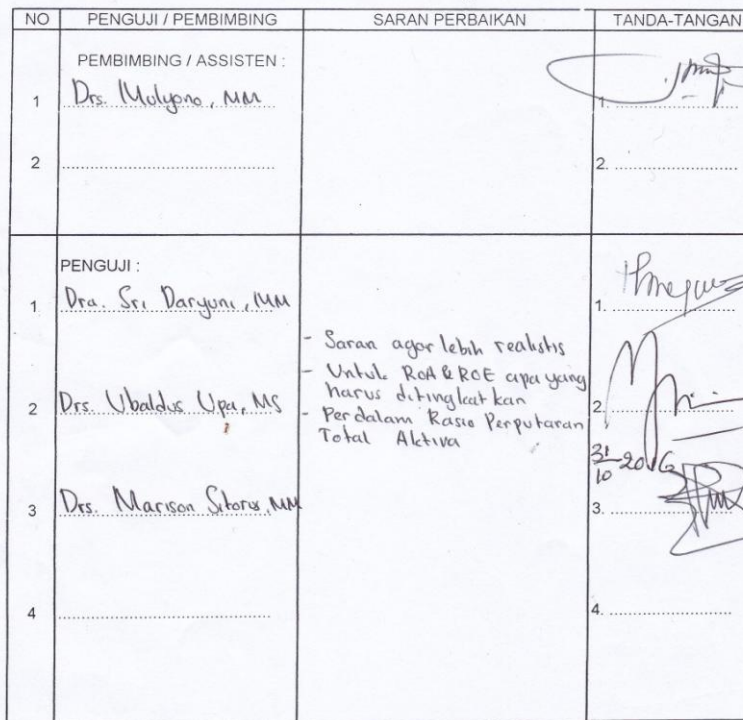 NO PENGUJI / PEMBIMBING SARAN PERBAIKAN TANDA-TANGAN
PEMBIMBING / ASSISTEN :
1 Drs. Mulyono, MM 1.
2 2.
PENGUJI :
1 Dra. Sri Daryuni, MM 1.
- Saran agar lebih realistis
- Untuk ROA & ROE apa yang
harus ditingkatkan
2 Drs. Ubaldus Upa, MS 2.
- Perdalam Rasio Perputaran
Total Aktiva
31/10-2016
3 Drs. Marison Sitorus, MM 3.
4 4.